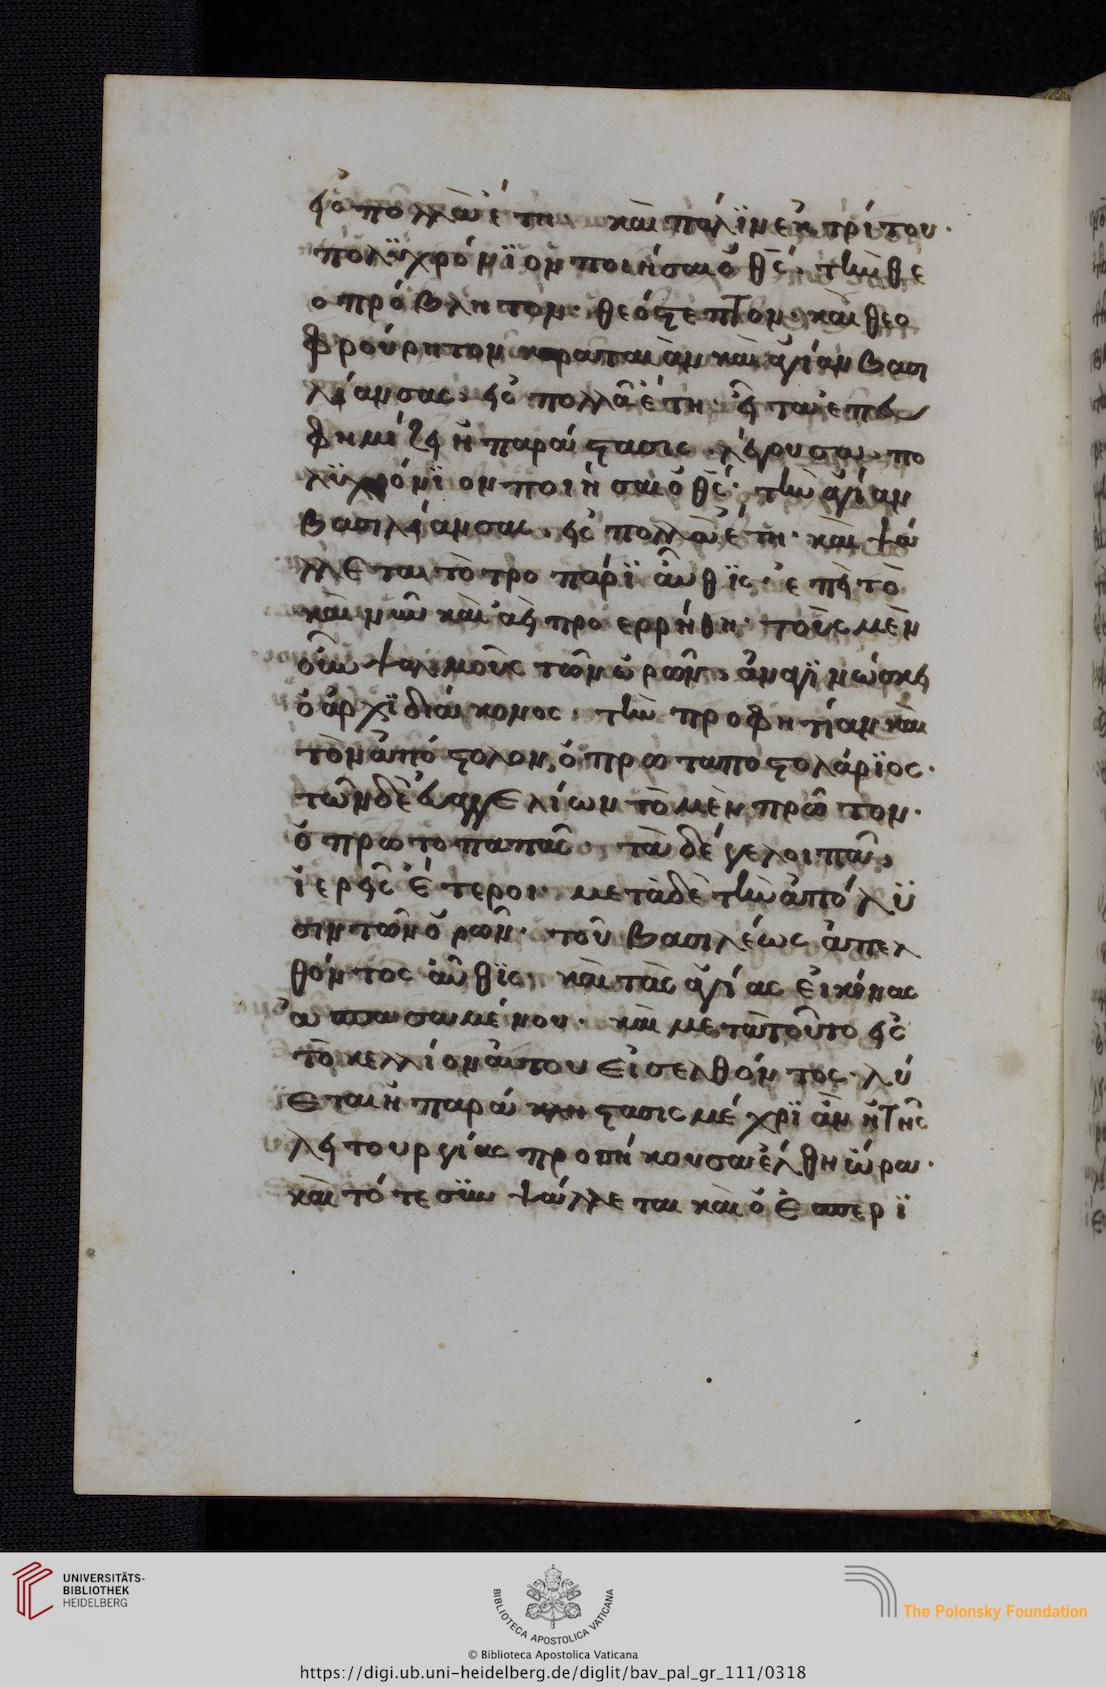 εἰς πολλὰ ἔτη. καὶ πάλϊν ἐκ τρίτου.
πολϋχρόνϊον ποιήσαι ὁ θς. τὴν θε
οπρόβλητον. θεόστεπτον. καὶ θεο
φρούρητον κραταιὰν καὶ ἁγίαν βασι
λείαν σας. εἰς πολλὰ ἔτη. εἶτα ἐπευ
φημίζει ἡ παράστασις λέγουσα. πο
λϋχρόνϊον ποιήσαι ὁ θς. τὴν ἁγίαν
βασιλείαν σας. εἰς πολλὰ ἔτη. καὶ ψά
λλεται τὸ τροπάρϊ αὖθϊς. ἐπεὶ τὸ
καὶ νῦν καὶ ἀεὶ προερρήθη. τοὺς μὲν
οὖν ψαλμοὺς τῶν ὡρῶν. ἀναγϊνώσκει
ὁ ἀρχϊδιάκονος. τὴν προφητείαν καὶ
τὸν ἀπόστολον, ὁ πρωταποστολάρϊος.
τῶν δὲ εὐαγγελίων τὸ μὲν πρῶτον.
ὁ πρωτοπαπᾶς. τὰ δέ γε λοιπὰ,
ἱερεῖς ἕτεροι. μετὰ δὲ τὴν ἀπόλϋ
σιν τῶν ὁρῶν. τοῦ βασιλέως ἀπελ
θόντος αὖθϊς. καὶ τὰς ἁγίας εἰκόνας
ἀσπασαμένου. καὶ μετὰ τοῦτο εἰς
τὸ κελλίον αὐτοῦ εἰσελθόντος. λύ
εται ἡ παράστασις μέχρϊ ἂν ἡ τῆς
λειτουργίας προσήκουσα ἔλθη ὥρα.
καὶ τότε σϋμψάλλεται καὶ ὁ ἑσπερϊ
UNIVERSITÄTS-
BIBLIOTHEK
HEIDELBERG
BIBLIOTECA APOSTOLICA VATICANA
The Polonsky Foundation
© Biblioteca Apostolica Vaticana
https://digi.ub.uni-heidelberg.de/diglit/bav_pal_gr_111/0318